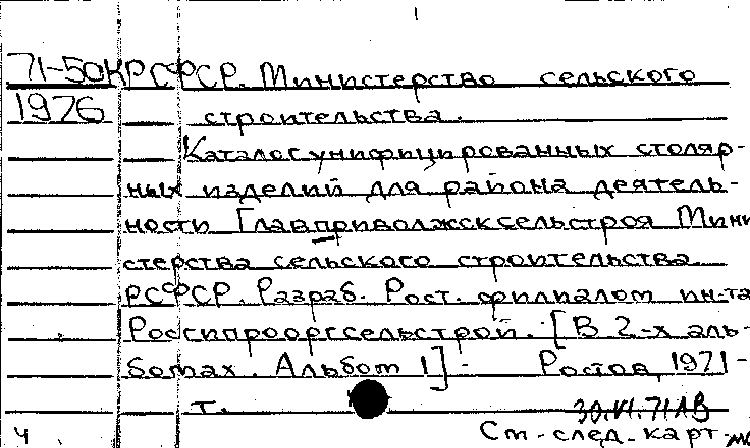 71-50К РСФСР. Министерство сельского
1976 строительства.
Каталог унифицированных столяр-
ных изделий для района деятель-
ности Главприволжсксельстроя Мини
стерства сельского строительства
РСФСР. Разраб. Рост. филиалом ин-та
Росгипрооргсельстрой. [В 2-х аль-
бомах. Альбом 1] - Ростов, 1971-
т. 30.VI.71ЛВ
Ч См. след. карт.